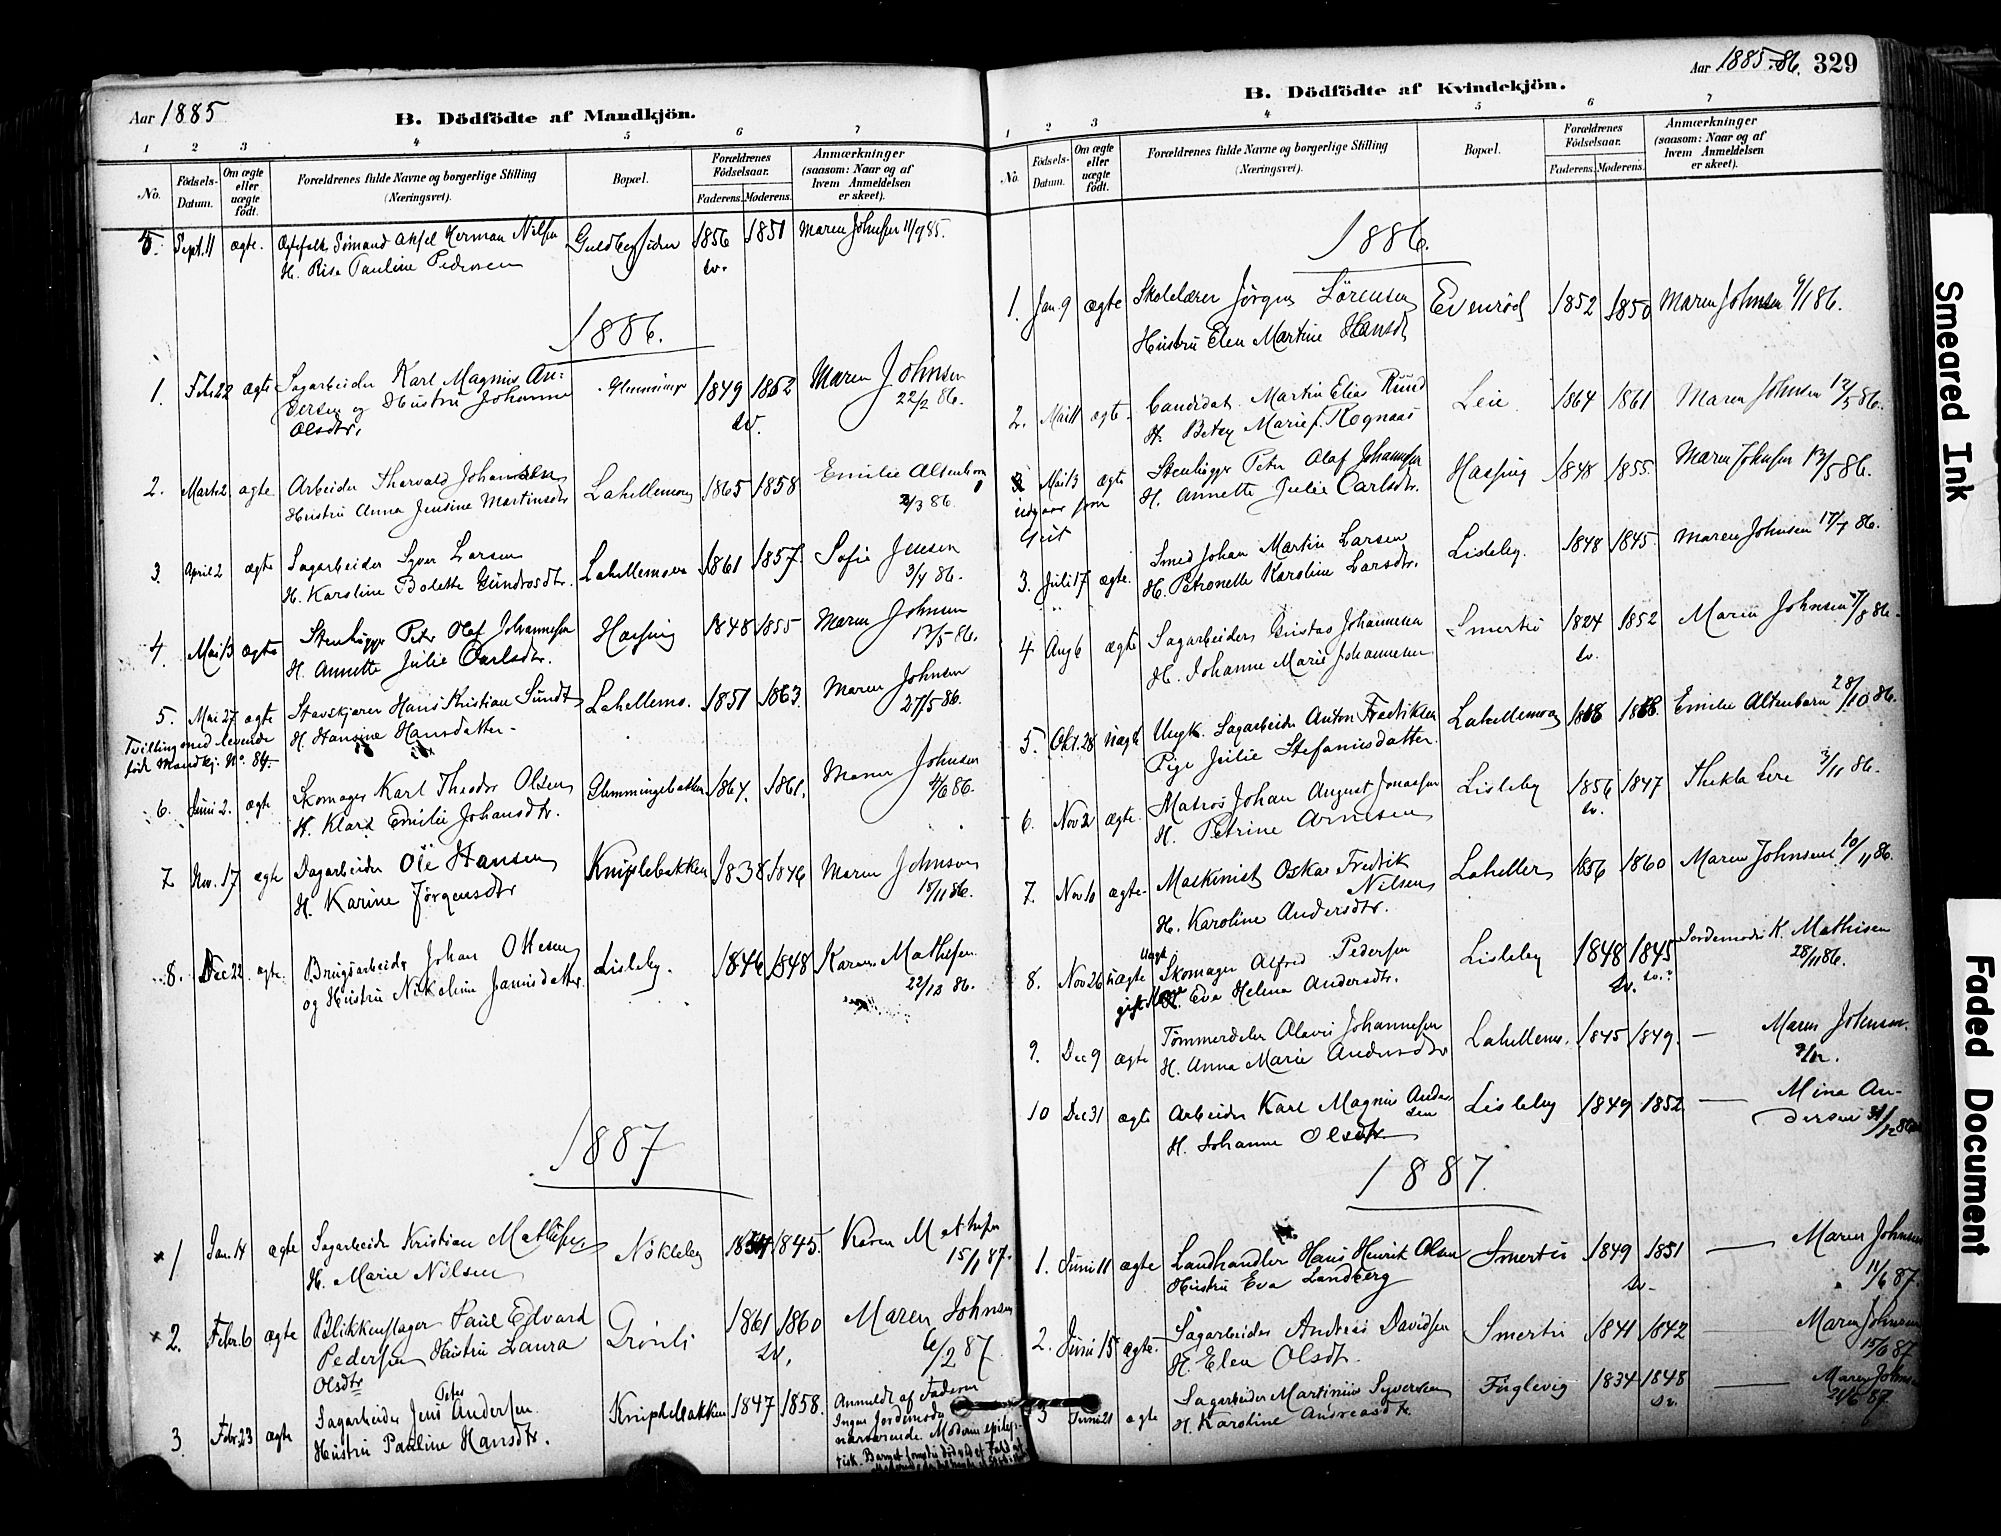 Aar 1885
B. Dödfödte af Mandkjön.
1 2 3 4 5 6 7
No. Födsels-Datum. Om ægte eller uægte födt. Forældrenes fulde Navne og borgerlige Stilling (Næringsvei). Bopæl. Forældrenes Födselsaar. Faderens. Moderens. Anmærkninger (saasom: Naar og af hvem Anmeldelsen er skeet).
5. Sept. 11 ægte. Ægtefolk Sömand Axel Herman Nilsen 1856 1851 Maren Johnsen 11/9 85.
H. Risa Pauline Pedersen sv.
1886.
1. Febr. 22 ægte Sagarbeider Karl Magnus An- Glemminge 1849 1852 Maren Johnsen
dersen og Hustru Johanne sv. 22/2 86.
Olsdtr.
2. Marts 2 ægte Arbeider Thorvald Johansen Lahellemoen 1865 1858 Emilie Altenborn
Hustru Anna Jensine Martinsdtr 2/3 86.
3. April 2 ægte Sagarbeider Syver Larsen Lahellemoen 1861 1857 Sofie Jensen
H. Karoline Bolette Gundrosdtr. 3/4 86.
4. Mai 13 ægte Stenhugger Peter Olaf Johannesen Hassing 1848 1855 Maren Johnsen
H. Annette Julie Carlsdtr. 13/5 86.
5. Mai 27 ægte Stavskjærer Hans Kristian Sundt Lahellemo. 1851 1863. Maren Johnsen
H. Hansine Hansdatter. 27/5 86.
Tvilling med levende
födt Mandkj. No. 84.
6. Juni 2. ægte Skomager Karl Theodor Olsen Glemmingebakken 1864. 1861. Maren Johnsen
H. Klara Emilie Johansdtr. 4/6 86.
7 Nov. 17 ægte Dagarbeider Ole Hansen Kniplebakken 1838 1846 Maren Johnson
H. Karine Jörgensdtr 18/11 86.
8. Dec 22 ægte. Brugsarbeider Johan Ottesen Lisleby. 1846 1848 Karen Mathisen
og Hustru Nikoline Jansdatter. 22/12 86.
1887
1 Jan. 14 ægte Sagarbeider Kristian Mathisen Nökleby 1845. Karen Mathisen
H. Marie Nilsen 15/1 87.
2. Febr. 6 ægte Blikkenslager Paul Edvard Grönli 1861 1860 Maren Johnsen
Pedersen Hustru Laura sv. 6/2 87
Olsdtr
3. Febr. 23 ægte Sagarbeider Jens Peter Andersen. Kniplebakken 1847 1858. Anmeldt af Faderen
Hustru Pauline Hansdtr. Ingen Jordemoder
nærværende. Moderen epilep-
tisk.
Aar 1885-86. 329
B. Dödfödte af Kvindekjön.
1 2 3 4 5 6 7
No. Födsels-Datum. Om ægte eller uægte födt. Forældrenes fulde Navne og borgerlige Stilling (Næringsvei). Bopæl. Forældrenes Födselsaar. Faderens. Moderens. Anmærkninger (saasom: Naar og af hvem Anmeldelsen er skeet).
1886.
1. Jan. 9 ægte Skolelærer Jörgen Sörensen Evenröd 1852 1850 Maren Johnsen 9/1 86.
Hustru Elen Martine Hansdtr
2. Mai 11 ægte. Candidat Martin Elias Ruud Leie 1864 1861 Maren Johnsen 12/5 86.
H. Betzy Marie f. Rognaas
3 Mai 13 ægte Stenhugger Peter Olaf Johannesen Hassing 1848 1855. Maren Johnsen 13/5 86.
udgaar som H. Annette Julie Carlsdtr.
Geit
3. Juli 17 ægte. Smed Johan Martin Larsen Lisleby. 1848 1845. Maren Johnsen 17/7 86.
H. Petronelle Karoline Larsdtr.
4 Aug 6 ægte Sagarbeider Gustav Johannesen Smertu 1824 1852 Maren Johnsen 7/8 86.
H. Johanne Marie Johannesen sv.
5. Okt. 28 uægte Ungk. Sagarbeider Anton Fredriksen Lahellemoen Emilie Altenborn 28/10 86.
Pige Julie Stefaniesdatter.
6. Nov 2 ægte. Matros Johan August Jonassen Lisleby 1856 1847 Thekla Lere 3/11 86.
H. Petrine Arnesen sv.
7. Nov 10 ægte. Maskinist Oskar Fredrik Lahellen 1856 1860 Maren Johnsen 10/11 86.
Nilsen
H. Karoline Andersdtr.
8. Nov 26 uægte Skomager Alfred Pedersen Lisleby 1848 1845 Jordemoder K. Mathisen
gift Mand Eva Helena Andersdtr. sv. sv.? 28/11 86.
9. Dec 9 ægte Tömmerdeler Olavis Johannesen Lahellemo. 1845 1849. — Maren Johnsen.
H. Anna Marie Andersdtr 9/12.
10 Dec 31 ægte Arbeider Karl Magnus Andersen Lisleby 1849 1852 — Mina An-
H. Johanne Olsdtr dersen 31/12 86
1887.
1. Juni 11 ægte Landhandler Hans Henrik Olsen Smertu 1849 1851 — Maren Johnsen
Hustru Eva Landberg sv. 11/6 87
2. Juni 15 ægte. Sagarbeider Andreas Davidsen Smertu 1841 1842 — Maren Johnsen
H. Elen Olsdtr. 15/6 87
3 Juni 21 ægte Sagarbeider Martinius Syversen Fuglevig 1834 1848 — Maren Johnsen
H. Karoline Andreasdtr. sv. 21/6 87.
Smeared Ink
Faded Document